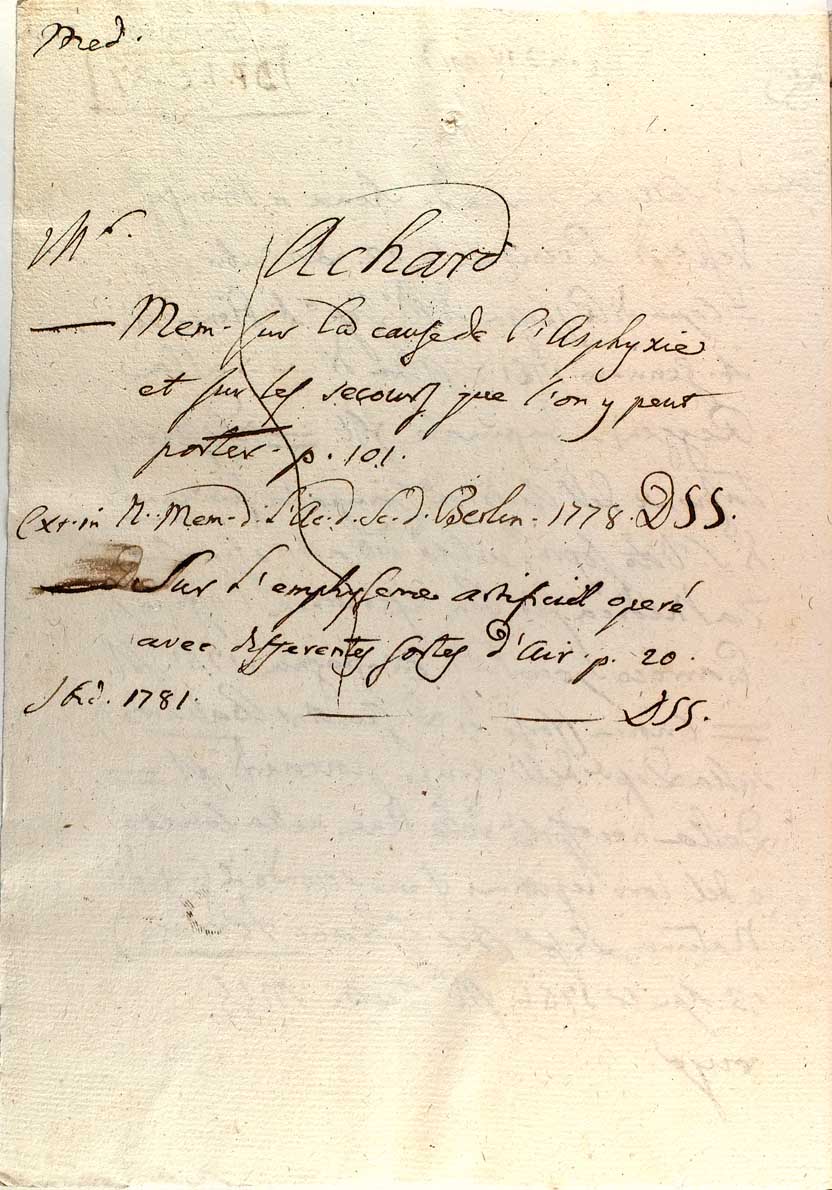 Med.
Mr. Achard
— Mem. sur la cause de l'Asphyxie
et sur les secours que l'on y peut
porter. p. 101.
Ext. in N. Mem. d. L'Ac. d. Sc. d. Berlin. 1778. DSS.
— Sur L'emphyseme artificiel operé
avec differentes sortes d'Air. p. 20.
Ibid. 1781. — — DSS.